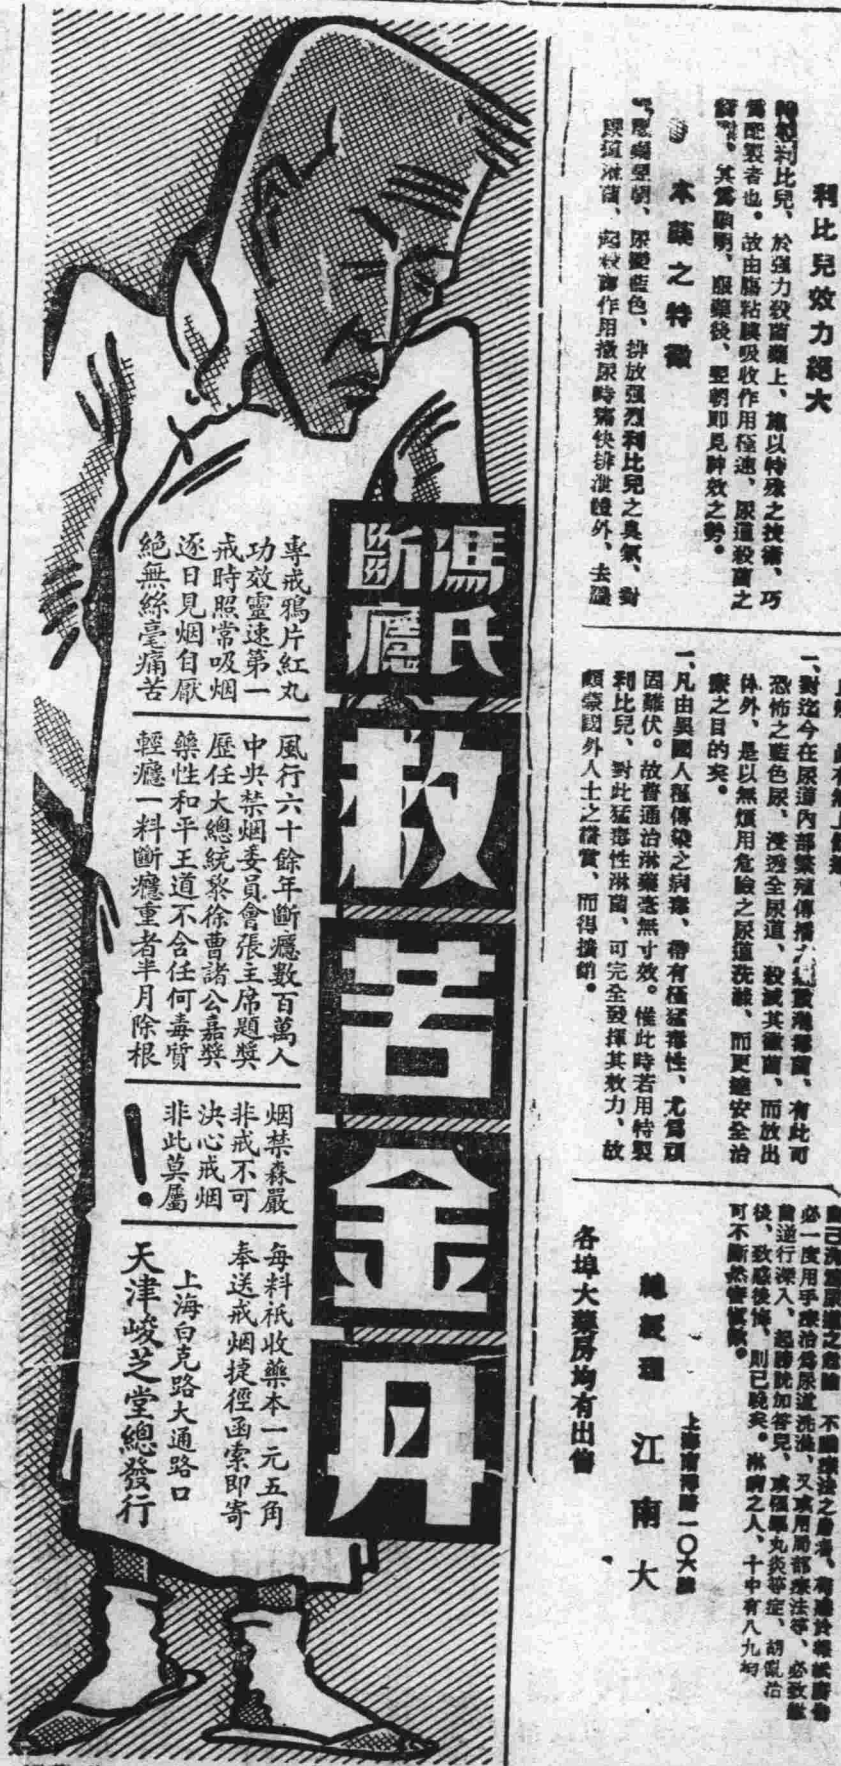 利比兒效力絕大
特製利比兒、於强力殺菌藥上、施以特殊之技術、巧
爲配製者也。故由腸粘膜吸收作用極速、尿道殺菌之
其爲顯明、服藥後、翌朝即見神效之勢。
本藥之特徵
服藥翌朝、尿變藍色、排放强烈利比兒之臭氣、對
尿道淋菌、起殺菌作用撒尿時痛快排泄體外、去
一、對迄今在尿道內部繁殖傳播之 菌、有此可
恐怖之藍色尿、浸透全尿道、殺滅其黴菌、而放出
体外、是以無須用危險之尿道洗滌、而更達安全治
療之目的矣。
一、凡由異國人種傳染之病毒、帶有極猛毒性、尤爲頑
固難伏。故普通治淋藥毫無寸效。惟此時若用特製
利比兒、對此猛毒性淋菌、可完全發揮其效力、故
頗蒙國外人士之讚賞、而得擴銷。
自己洗滌尿道之危險
必一度用手療治爲尿道洗滌、又或用局部療法等、必致
菌逆行深入、起膀胱加答兒、或睾丸炎等症、胡亂治
後、致感後悔、則已晚矣。淋病之人、十中有八九均
可不斷然
上海 一〇六號
總經理 江南大
各埠大藥房均有出售
馮氏
斷癮
救苦金丹
專戒鴉片紅丸
功效靈速第一
戒時照常吸烟
逐日見烟自厭
絕無絲毫痛苦
風行六十餘年斷癮數百萬人
中央禁烟委員會張主席題獎
歷任大總統黎徐曹諸公嘉獎
藥性和平王道不含任何毒質
輕癮一料斷癮重者半月除根
烟禁森嚴
非戒不可
決心戒烟
非此莫屬
！
每料祇收藥本一元五角
奉送戒烟捷徑函索即寄
上海白克路大通路口
天津峻芝堂總發行